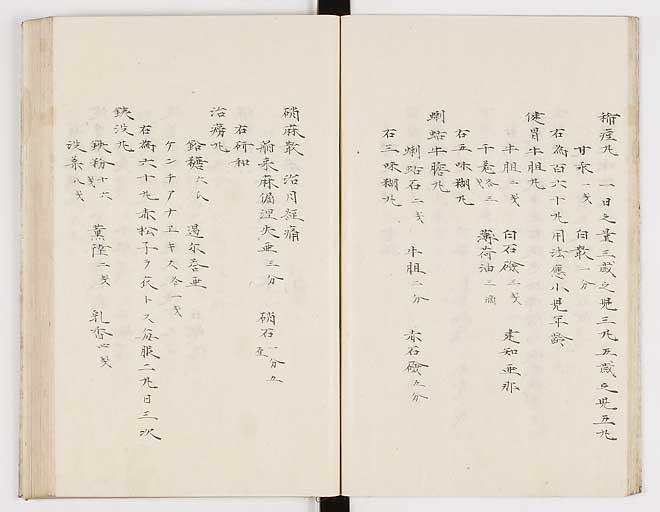 稀痘丸 一日之量三歳之児三丸五歳之児五丸
甘汞一戔 白散一分
右為百六十丸用法應小児年齢
健胃牛胆丸
牛胆二戔 白石磠三戔 建知亜那
薄荷油三滴
右五味糊丸
蜊蛄牛膽丸
蜊蛄石二戔 牛胆二分 赤石磠五分
右三味糊丸
硝麻散 治月経痛
硝石一分五
右研和
治癆丸
鉛糖六氏
ケンチアナヱキス 一戔
右為六十丸赤松子ヲ衣トス毎服二丸日三次
鉄没丸
鉄粉十六戔 薫陸二戔 乳香四戔
没薬八戔